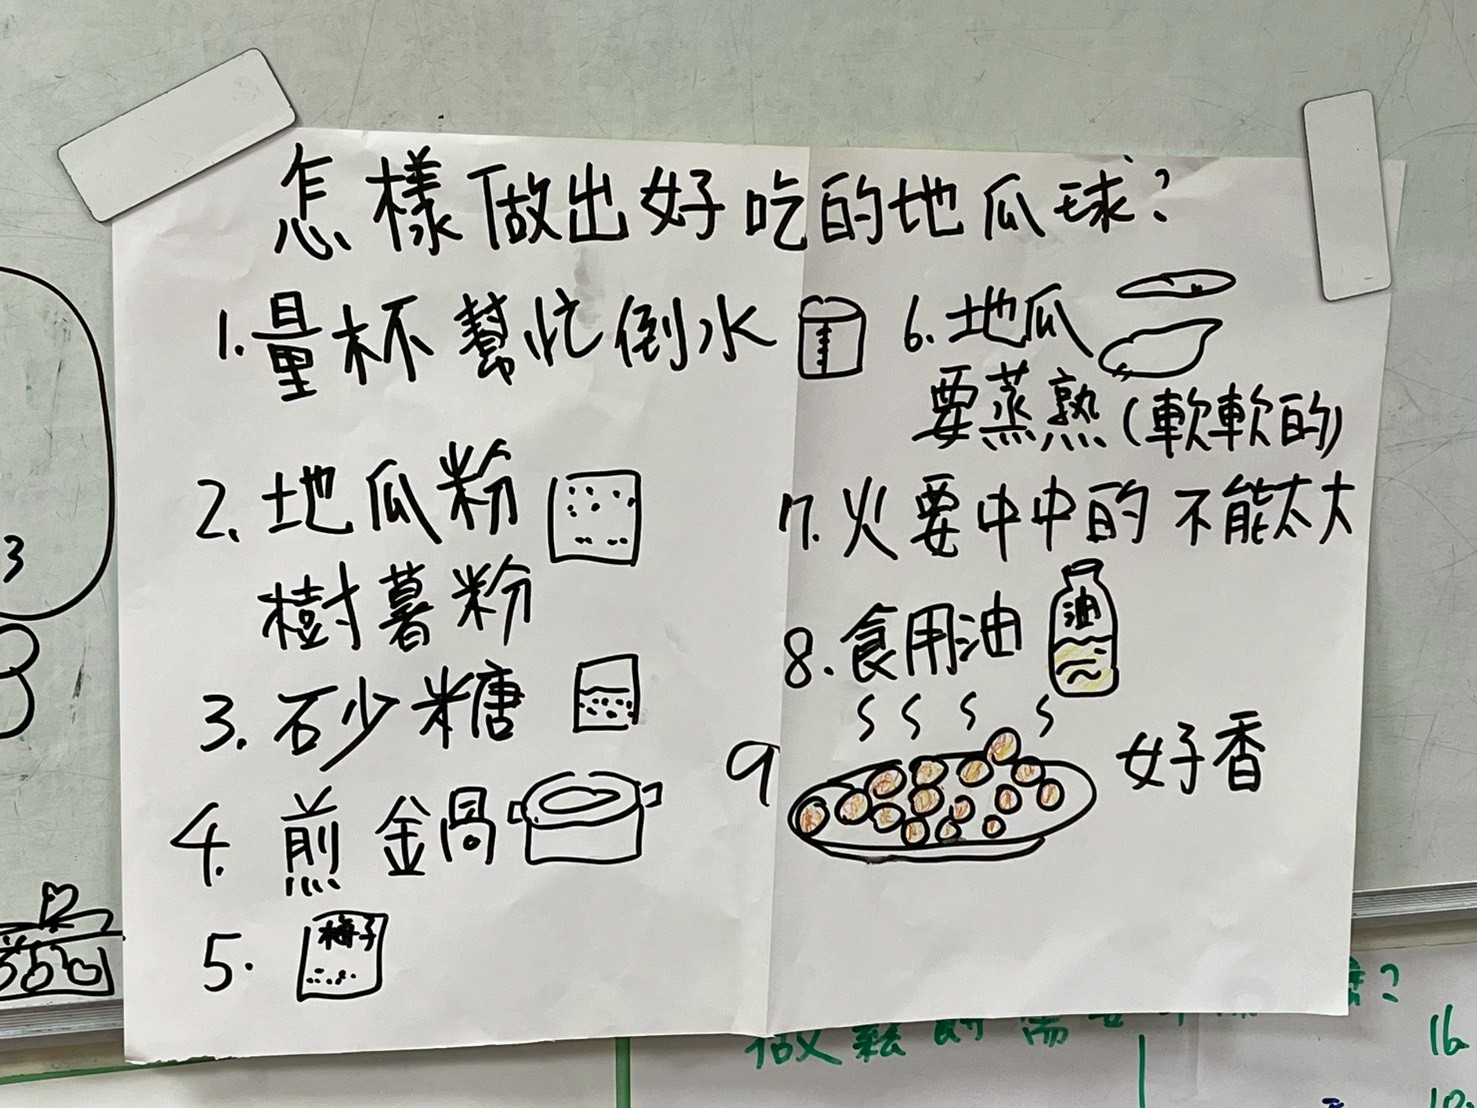 怎樣做出好吃的地瓜球?
1.量杯幫忙倒水
2.地瓜粉
樹薯粉
3.砂糖
4.煎鍋
5.梅子
6.地瓜
要蒸熟(軟軟的)
7.火要中中的不能太大
8.食用油
油
9
好香
3
做鬆餅需要
?
16